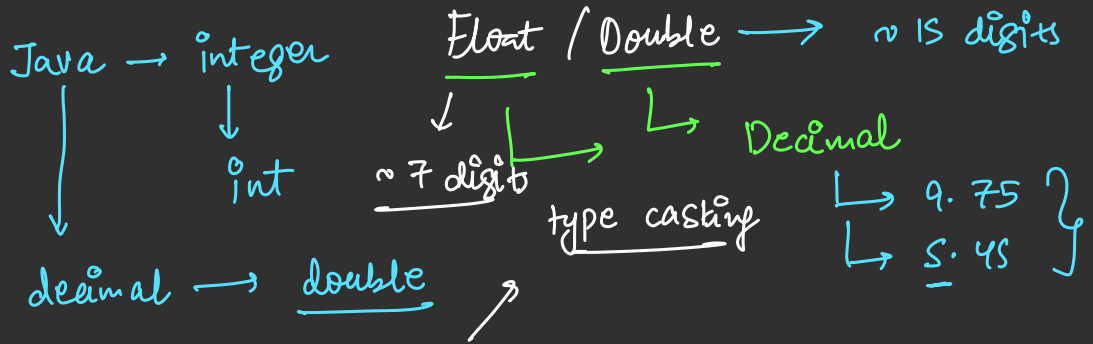 Java → integer
Float / Double → ~ 15 digits
int
~ 7 digits
Decimal
type casting
9.75
5.45
decimal → double